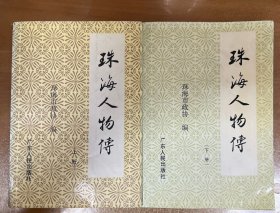 珠海人物傳
珠海市政协 编
上册
广东人民出版社
珠海人物傳
珠海市政协 编
下册
广东人民出版社